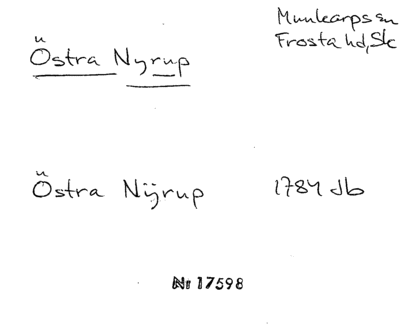 Östra Nyrup
Munkarps sn
Frosta hd, Sk
Östra Nÿrup 1784 Jb
Nr 17598